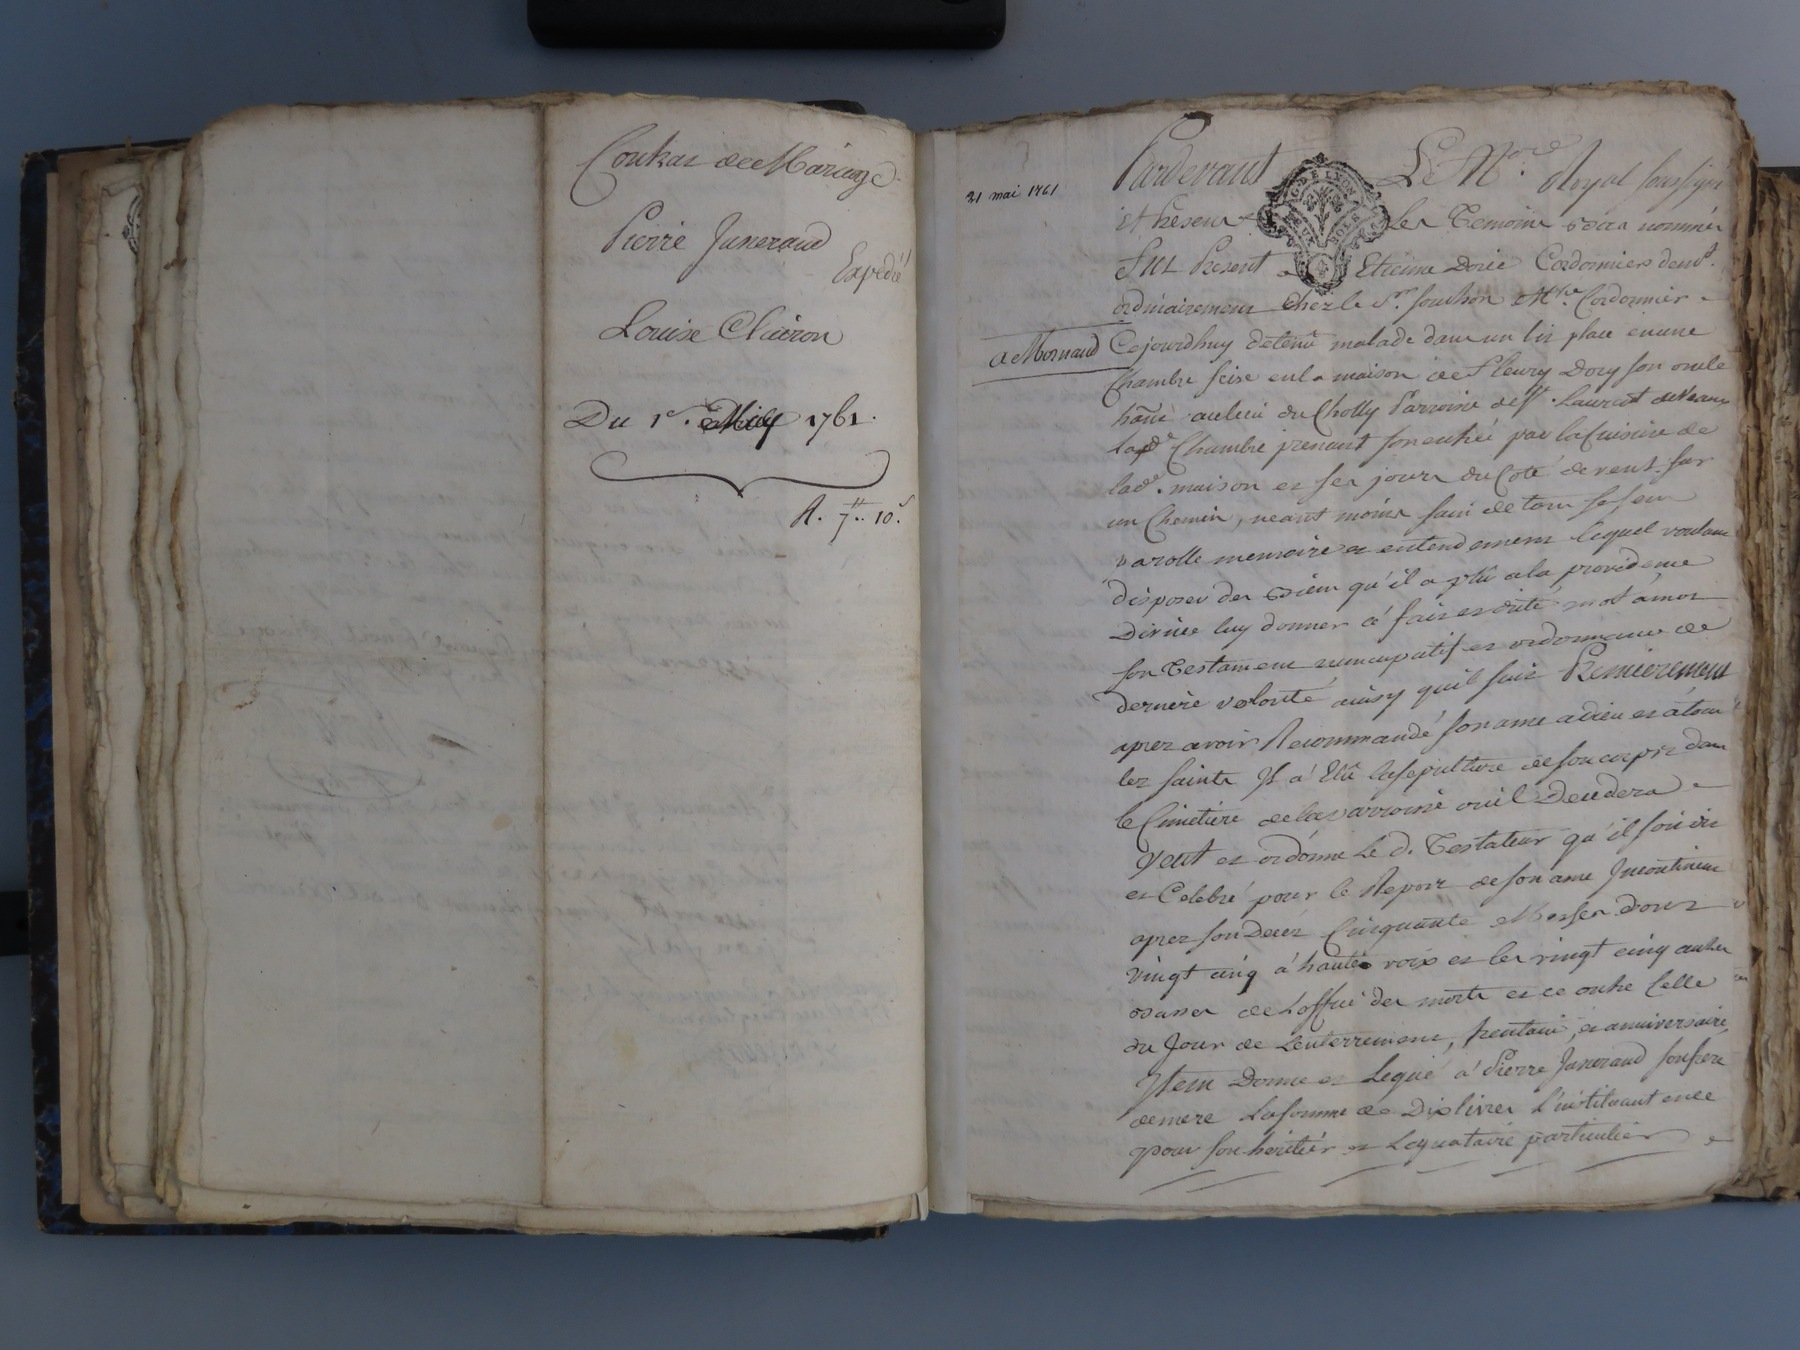 Contrat de Mariage
Pierre Juneraud
Expedié
Louise Clairon
Du 1er. May 1761.
R. 7tt. 10s.
21 mai 1761
Pardevant Le Nre. Royal soussigné
et presens les Temoins bas nommés
Fut Present Etienne Dorié Cordonnier demt.
ordinairement chez le Sr. Souchon Mtre. Cordonnier
a Mornand
Cejourdhuy detenu malade dans un lit placé en une
Chambre scise en la maison de Fleury Dory son oncle
hant. au lieu du Cholly Parroisse de St. Laurent de Vaux
Lade Chambre prenant son entrée par la Cuisine de
lade. maison et ses jours du Coté de vent sur
un Chemin, neant moins sain de tous ses sens
parolle memoire et entendement lequel voulant
disposer des biens qu'il a plû a la providence
Divine luy donner à fait et dicté mot à mot
son Testament nuncupatif et ordonnance de
derniere volonté ainsy qu'il suit Premierement
aprez avoir Recommandé son ame a dieu et à tous
les saints Il à Elû la sepulture de son corps dans
le Cimetiere de la parroisse ou il Decedera
Veut et ordonne Le d. Testateur qu'il soit dit
et Celebré pour le Repos de son ame Incontinent
aprez son Decez Cinquante Messes dont
vingt cinq à haute voix et les vingt cinq autres
basses de L'office des morts et ce outre Celle
du Jour de Lenterrement, trentain, et anniversaire
Item Donne et Legue à Pierre Juneraud son frere
de mere La somme de Dix livres L'instituant en ce
pour son héritier et Legataire particulier